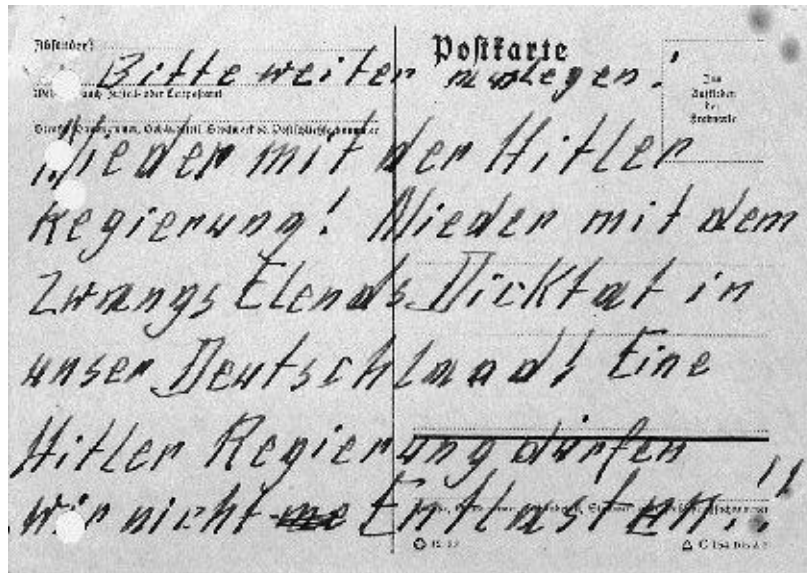 Absender:
Postkarte
Bitte weiter auslegen!
Nieder mit der Hitler
Regierung! Nieder mit dem
Zwangs Elends Dicktat in
unser Deutschland! Eine
Hitler Regierung dürfen
wir nicht Entlasten.!!